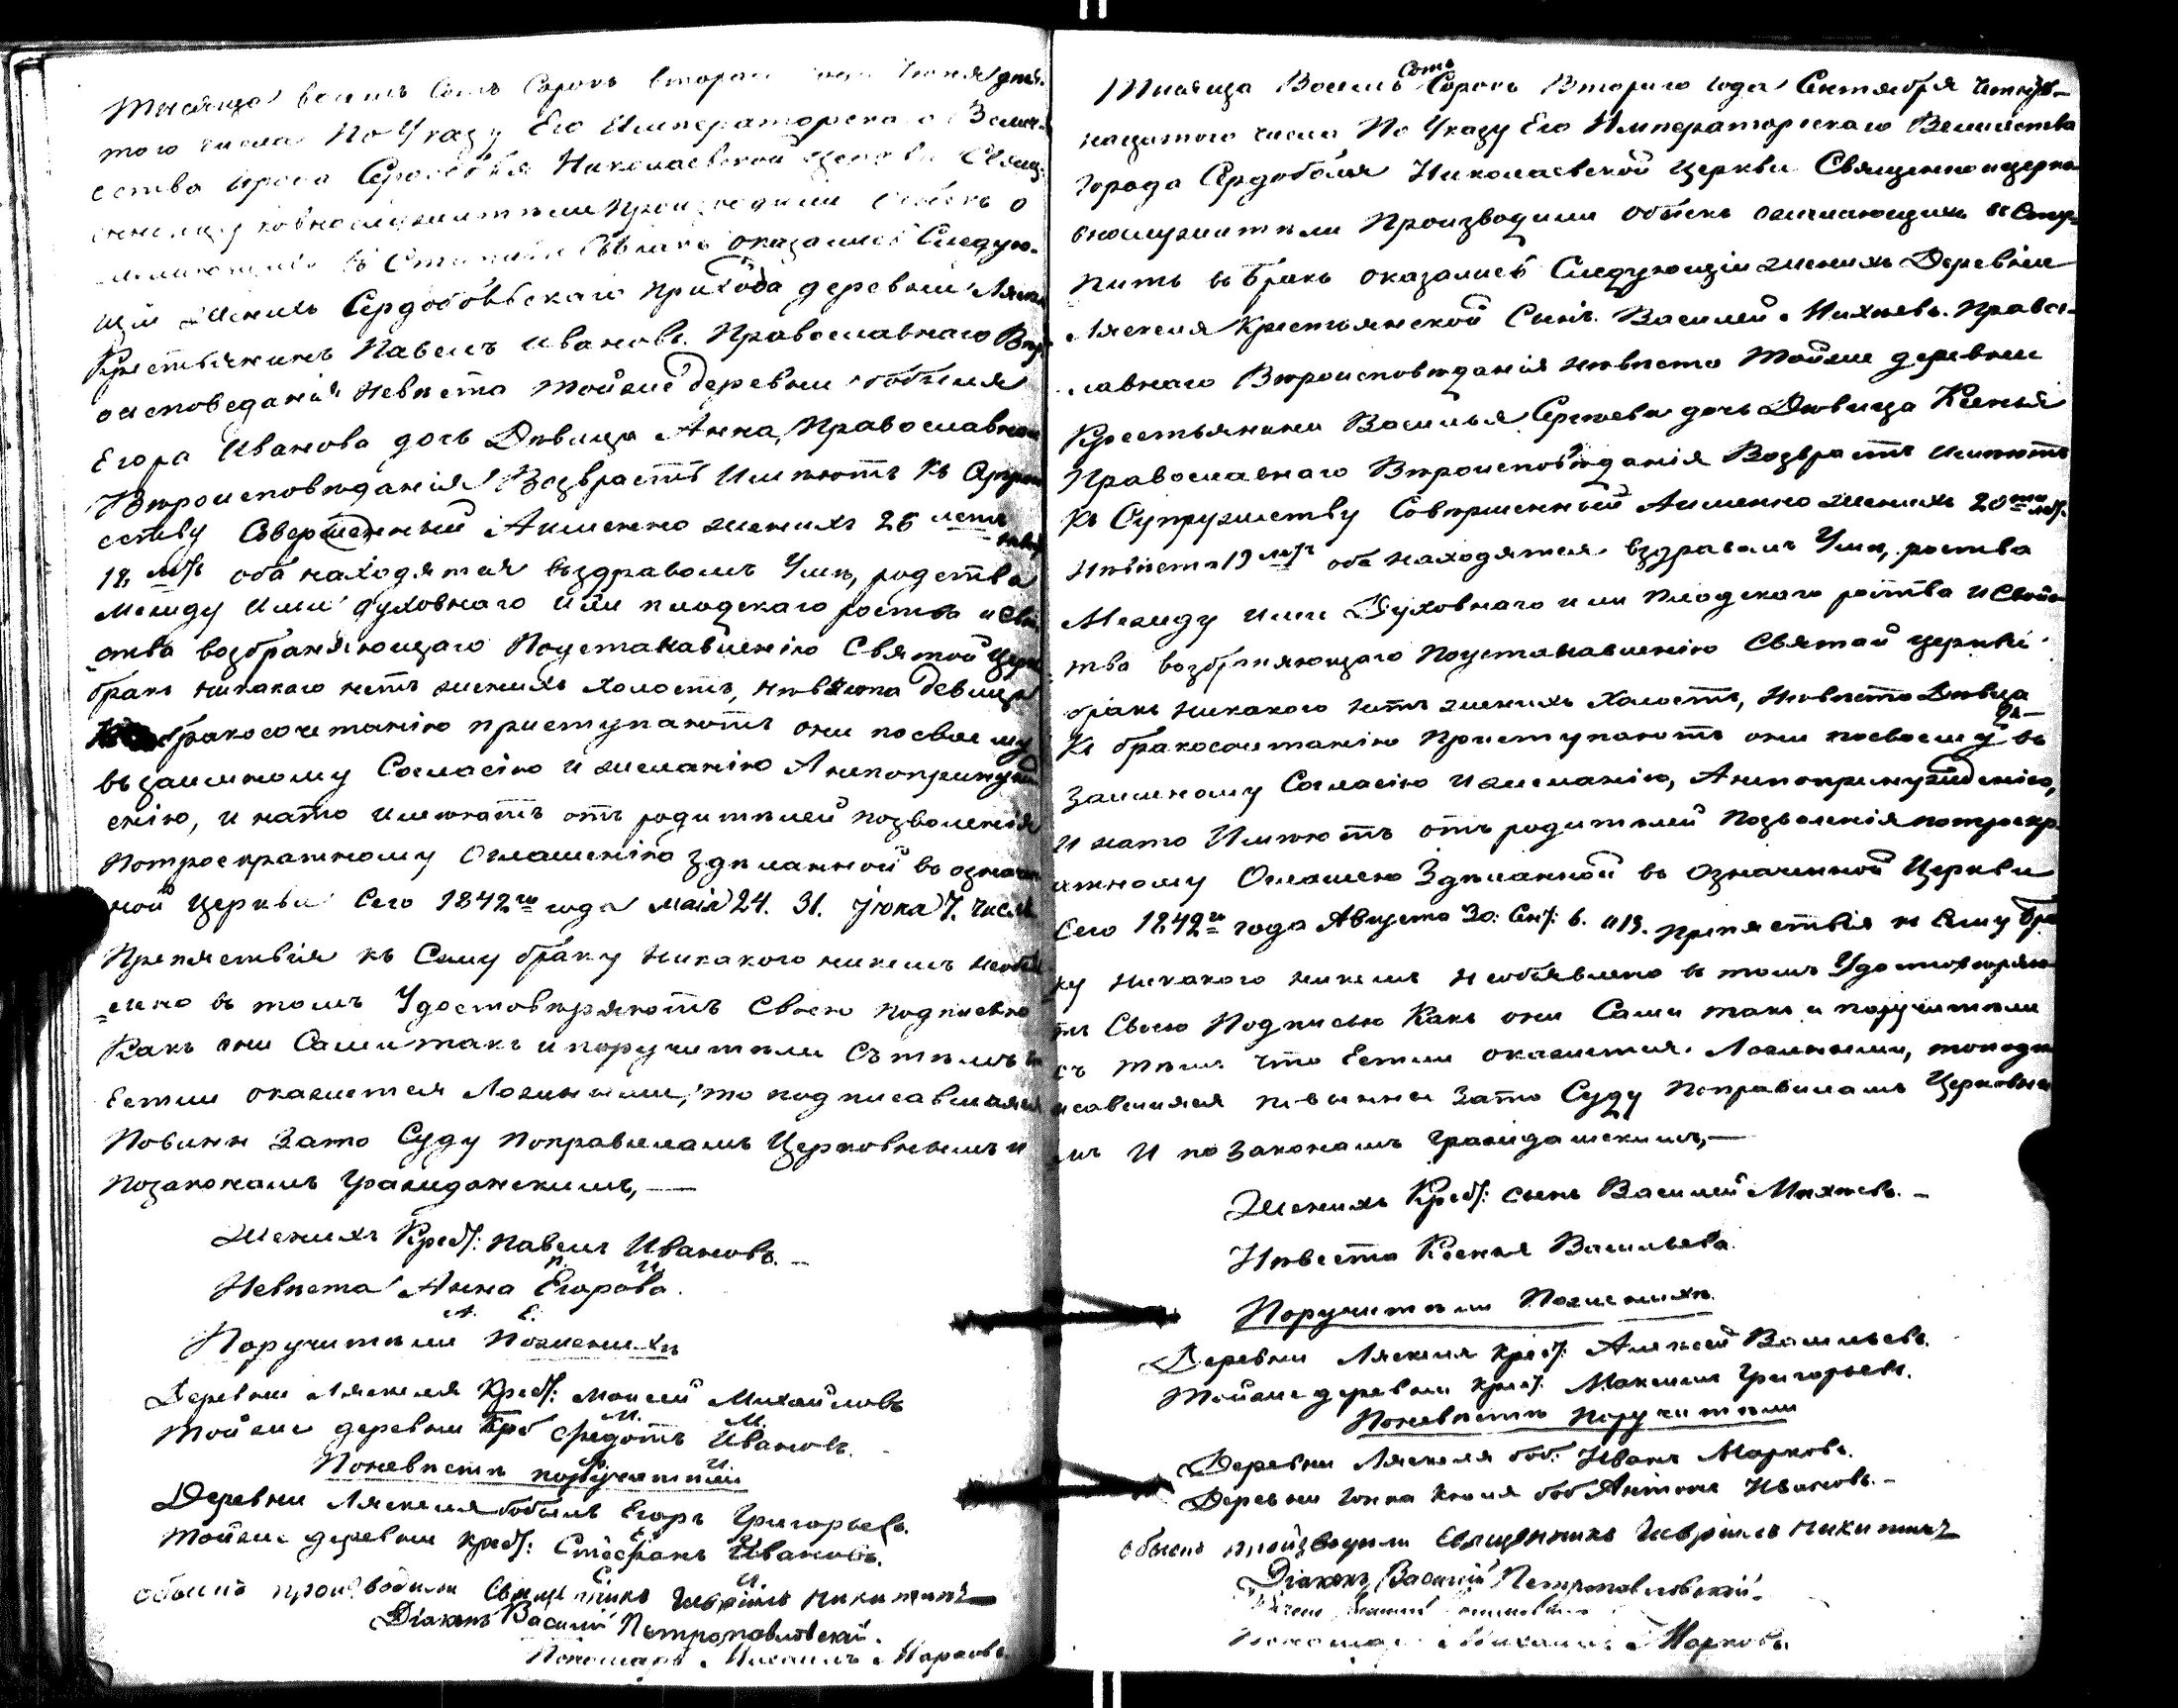 Тысяща восемь Сотъ Сорокъ втораго года Іюня девя-
того числа По Указу Его Императорскаго Велич-
ества города Сердоболя Николаевской Церкви Свящ-
енноицерковнослужители производили обыскъ о
желающихъ въ Ступить въ бракъ оказалися Следую-
щіи женихъ Сердобольскаго прихода деревни Ляски
Крестьянинъ Павелъ Ивановъ. Православнаго Вѣр
оисповеданія Невѣста тойже деревни бобыля
Егора Иванова дочь Дѣвица Анна, Православнаго
Вѣроисповѣданія Возврастъ Имѣютъ Къ Супруж
еству Совершенный Аименно женихъ 26 летъ невѣс
18 лѣтъ оба находятся въздравомъ Умѣ, родства
Между Ими духовнаго или плодскаго роства и Свой
ства возбраняющаго Поустановленію Святой Церкви
бракъ никакого нетъ женихъ холостъ, нѣвѣста девица
Къ бракосочетанію приступаютъ они посвоему
въ заимному Согласію и желанію Анепопринужд
енію, и нато имеютъ отъ родителей позволенія
Потроекратному Оглашенію Зделанной въ означен
ной Церкви Сего 1842го года маія 24. 31. Іюня 7. числ
Препяствія къ Сему браку никакого никемъ необъяв
лено въ томъ Удостовѣряютъ Своею подписью
Какъ они Сами такъ и поручители Съ тѣмъ что
Естли окажется Ложными, то подписавшаяся
Повинны Зато Суду Поправиламъ Церковнымъ и
Позаконамъ Гражданскимъ,—
Женихъ Крест: Павелъ Ивановъ. —
П. И.
Невѣста Анна Егорова.
А. Е.
Поручители Поженихѣ
Деревни Ляскеля Крест: Моисей Михайловъ
М. М.
Тойже деревни Кре Федотъ Ивановъ.
Ф. И.
Поневѣстѣ поручители
Деревни Ляскеля бобыль Егоръ Григорьевъ.
Е. Г.
Тойже деревни Крест: Стефанъ Ивановъ.
С. И.
обыскъ производили Священникъ Гавріилъ Никитинъ
Діаконъ Василій Петропавловскій.
Пономарь Михаилъ Марковъ.
Тысяща Восемь Сотъ Сорокъ Втораго года Сентября четыр-
надцатого числа По Указу Его Императорскаго Величества
Города Сердоболя Николаевской Церкви Священноицерко
внослужители Производили обыскъ ожелающихъ въ Сту-
пить въ бракъ оказалися Следующіи женихъ Деревни
Ляскеля Крестьянской Сынъ Василей Михѣевъ. Правос-
лавнаго Вѣроисповѣданія нѣвѣста Тойже деревни
Крестьянина Василья Сергѣева дочь Дѣвица Ксенья
Православнаго Вѣроисповѣданія Возврастъ имѣютъ
Къ Супружеству Совершенный Аименно женихъ 20ти лѣт.
Нѣвѣста 19 лѣтъ оба находятся вздравомъ Умѣ, роства
Между Ими Духовнаго или плодскаго роства и Свойс
тва возбраняющаго Поустановленію Святой Церкви
бракъ никакого нетъ женихъ холостъ, Нѣвѣста Дѣвица
Къ бракосочетанію Приступаютъ они посвоему въ
Заимному Согласію ижеланію, Анепопринужденію,
и нато Имѣютъ отъ родителей Позволенія потроекр
атному Оглашею Зделанной въ Означенной Церкви
Сего 1842го года Августа 30: Сент: 6. и 13. препяствія к Сему бра
ку никакого никемъ необъявлено въ томъ Удостовѣряю
тъ Своею Подписью Какъ они Сами такъ и поручители
съ темъ что Естли окажется Ложными, топодп
исавшияся повинны Зато Суду Поправиламъ Церковны
мъ И по Законамъ Гражданскимъ,—
Женихъ Крест: Сынъ Василей Михѣевъ. —
Нѣвеста Ксенья Васильева.
Поручители Поженихѣ.
Деревни Ляскеля крест: Алексей Васильевъ.
Тойже деревни крест. Максимъ Григорьевъ.
Поневѣстѣ поручители
Деревни Ляскеля боб: Иванъ Марковъ.
Деревни боб Антонъ Ивановъ. —
обыскъ производили Священникъ Гавріилъ Никитинъ
Діаконъ Василій Петропавловскій.
Пономарь Михаилъ Марковъ.